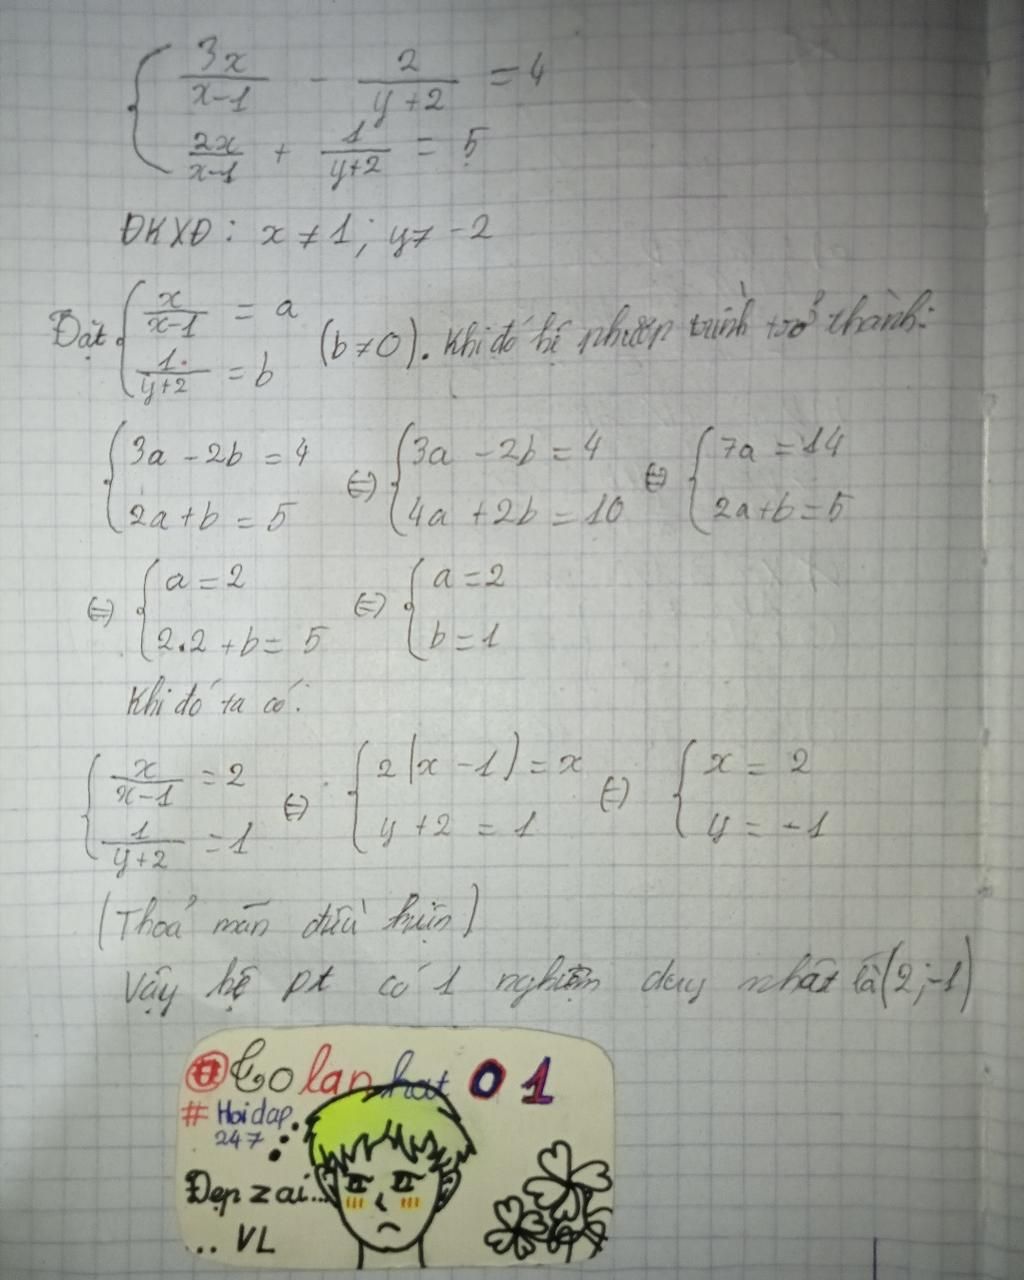 { 3x/(x-1) - 2/(y+2) = 4
2x/(x-1) + 1/(y+2) = 5
ĐKXĐ: x ≠ 1; y ≠ -2
Đặt { x/(x-1) = a
1/(y+2) = b (b ≠ 0). Khi đó hệ phương trình trở thành:
{ 3a - 2b = 4 ⇔ { 3a - 2b = 4 ⇔ { 7a = 14
2a + b = 5 4a + 2b = 10 2a + b = 5
⇔ { a = 2 ⇔ { a = 2
2.2 + b = 5 b = 1
Khi đó ta có:
{ x/(x-1) = 2 ⇔ { 2(x - 1) = x ⇔ { x = 2
1/(y+2) = 1 y + 2 = 1 y = -1
(Thoả mãn điều kiện)
Vậy hệ pt có 1 nghiệm duy nhất là (2; -1)
01
# Hoidap
247
Đẹp zai...
... VL